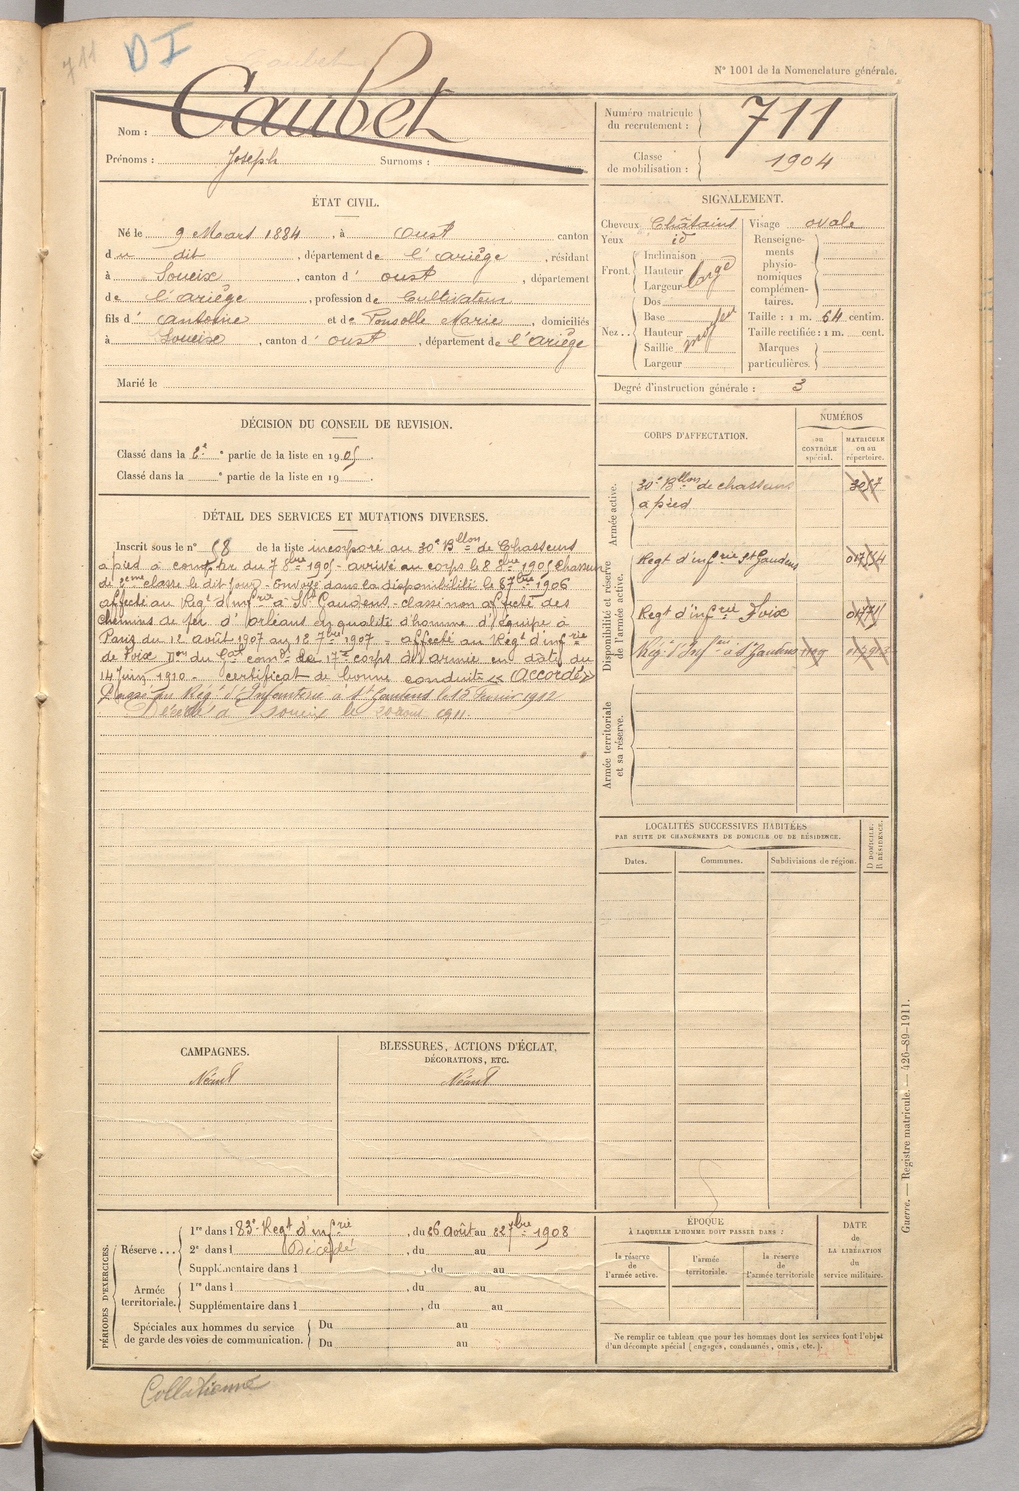 711
D I
N° 1001 de la Nomenclature générale.
Nom : Caubet
Prénoms : Joseph Surnoms :
Numéro matricule du recrutement : 711
Classe de mobilisation : 1904
ÉTAT CIVIL.
Né le 9 Mars 1884, à Oust canton
du dit, département de l'ariège, résidant
à Soueix, canton d' oust, département
de l'ariège, profession de Cultivateur
fils d' antoine et de Ponsolle Marie, domiciliés
à Soueix, canton d' oust, département de l'ariège
Marié le
SIGNALEMENT.
Cheveux Châtains
Yeux id
Front. Inclinaison
Hauteur large
Largeur
Nez.. Dos
Base moyen
Hauteur
Saillie
Largeur
Visage ovale
Renseignements physionomiques complémentaires.
Taille : 1 m. 64 centim.
Taille rectifiée : 1 m. cent.
Marques particulières.
Degré d'instruction générale : 3
DÉCISION DU CONSEIL DE REVISION.
Classé dans la 1e partie de la liste en 1905.
Classé dans la e partie de la liste en 19 .
DÉTAIL DES SERVICES ET MUTATIONS DIVERSES.
Inscrit sous le n° 58 de la liste incorporé au 30e Bllon de Chasseurs
à pied à compter du 7 8bre 1905 - arrivé au corps le 8 8bre 1905 Chasseur
de 2ème classe le dit jour - Envoyé dans la disponibilité le 1906
affecté au Régt d'infrie à St Gaudens - classé non affecté des
chemins de fer d'Orléans en qualité d'homme d'équipe à
Paris du 12 août 1907 au 12 7bre 1907 - affecté au Régt d'infrie
de Foix Don du Gal comdt le 17e corps d'armée en date du
14 Juin 1910 - certificat de bonne conduite « Accordé »
Passé au Régt d'Infanterie à St Gaudens le 15 Février 1912
Décédé à Soueix le 20 1911.
CORPS D'AFFECTATION.
NUMÉROS
au CONTRÔLE spécial.
MATRICULE ou au répertoire.
Armée active.
30e Bllon de chasseurs
à pied 3057
Disponibilité et réserve de l'armée active.
Regt d'infrie St Gaudens
Regt d'infrie Foix
Régt d'Infrie à St Gaudens
Armée territoriale et sa réserve.
LOCALITÉS SUCCESSIVES HABITÉES
PAR SUITE DE CHANGEMENTS DE DOMICILE OU DE RÉSIDENCE.
Dates. Communes. Subdivisions de région. D DOMICILE. R RÉSIDENCE.
CAMPAGNES.
Néant
BLESSURES, ACTIONS D'ÉCLAT,
DÉCORATIONS, ETC.
Néant
PÉRIODES D'EXERCICES.
Réserve... 1re dans l 83e Regt d'infrie, du 26 août au 22 7bre 1908
2e dans l Décédé, du au
Supplémentaire dans l , du au
Armée territoriale. 1re dans l , du au
Supplémentaire dans l , du au
Spéciales aux hommes du service de garde des voies de communication. Du au
Du au
ÉPOQUE
À LAQUELLE L'HOMME DOIT PASSER DANS :
la réserve de l'armée active.
l'armée territoriale.
la réserve de l'armée territoriale
DATE de LA LIBÉRATION du service militaire.
Ne remplir ce tableau que pour les hommes dont les services font l'objet
d'un décompte spécial (engagés, condamnés, omis, etc.).
Guerre. — Registre matricule. — 426-89-1911.
Collationné